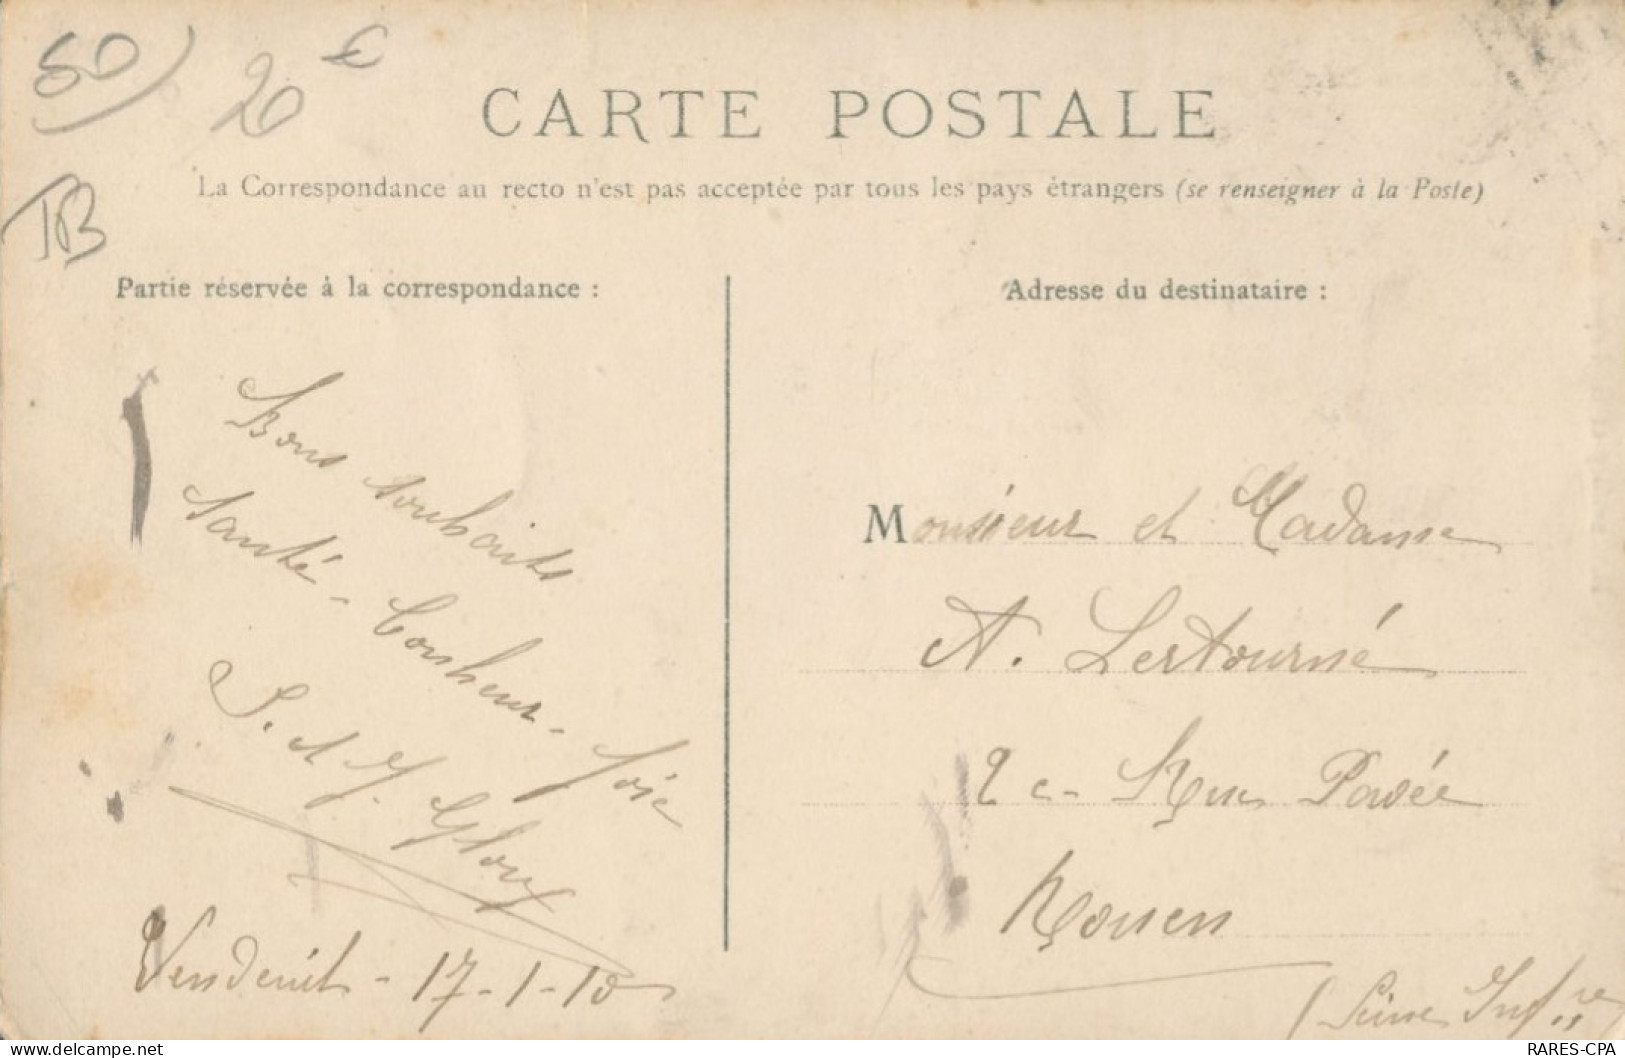 60
20 €
TB
CARTE POSTALE
La Correspondance au recto n'est pas acceptée par tous les pays étrangers (se renseigner à la Poste)
Partie réservée à la correspondance :
Bons souhaits
Santé - Bonheur - Joie
Vendeuil - 17-1-10
Adresse du destinataire :
Monsieur et Madame
A. Lertourné
2 c - Rue Pavée
Rouen
(Seine Infre
RARES-CPA